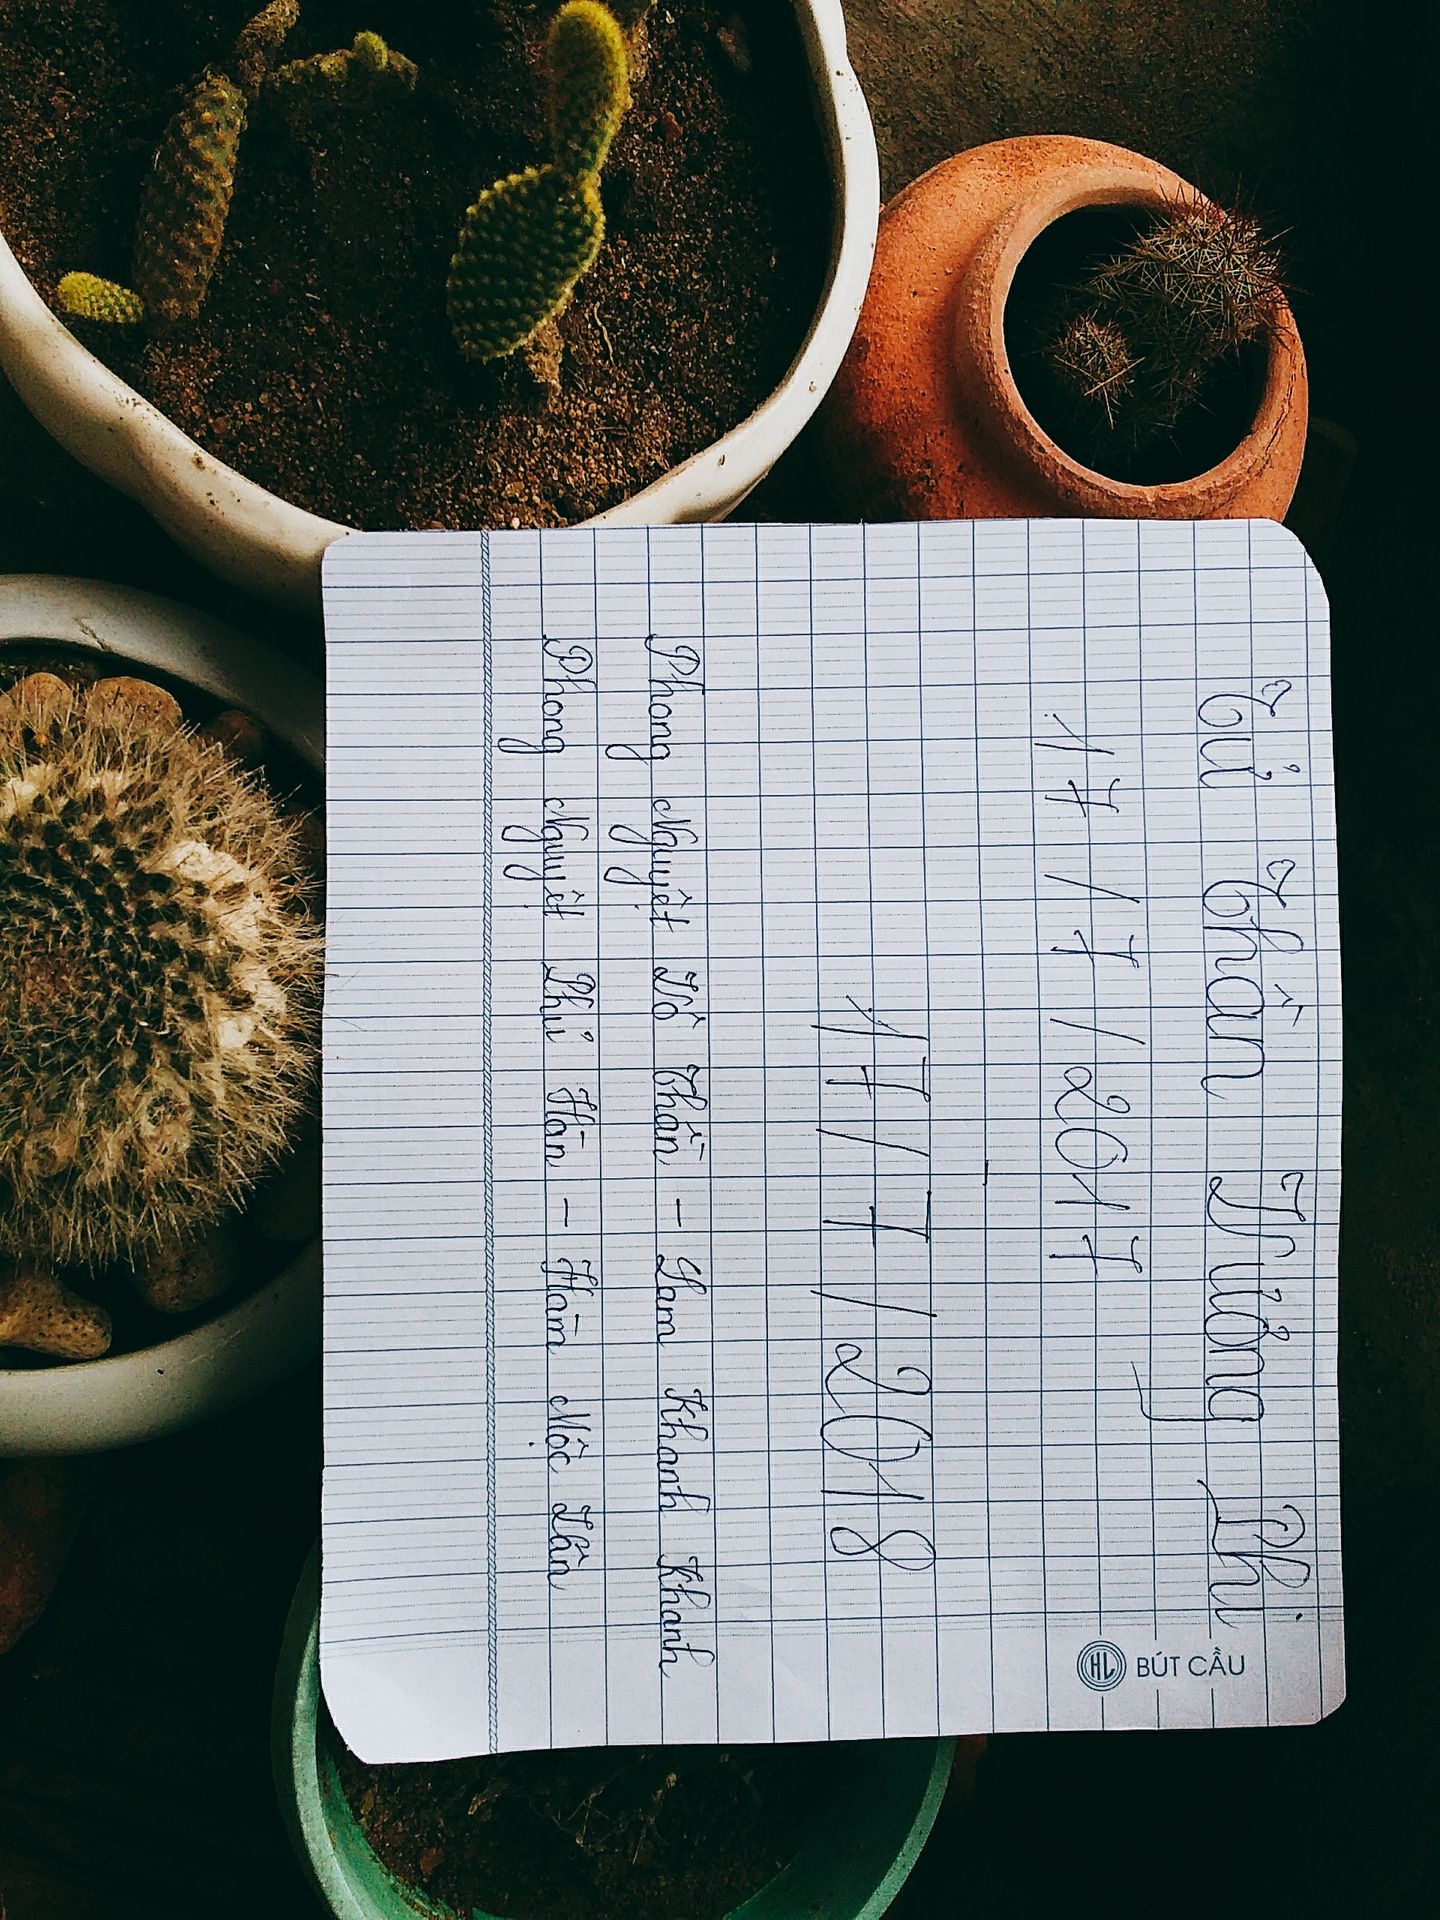 Tử Thần Tướng Phi
17/7/2017
17/7/2018
Phong Nguyệt Tố Thần - Lam Khanh Khanh
Phong Nguyệt Phủ Hàn - Hàm Mộc Lân
HL BÚT CẦU